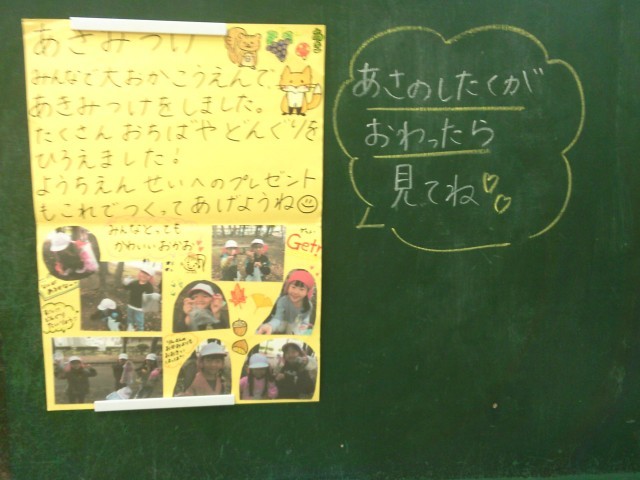 あきみつけ
みんなで大おかこうえんで、
あきみつけをしました。
たくさん おちばや どんぐりを
ひろえました!
ようちえん せいへのプレゼント
もこれでつくってあげようね
みんなとっても
かわいいおかお
Get!
あさのしたくが
おわったら
見てね